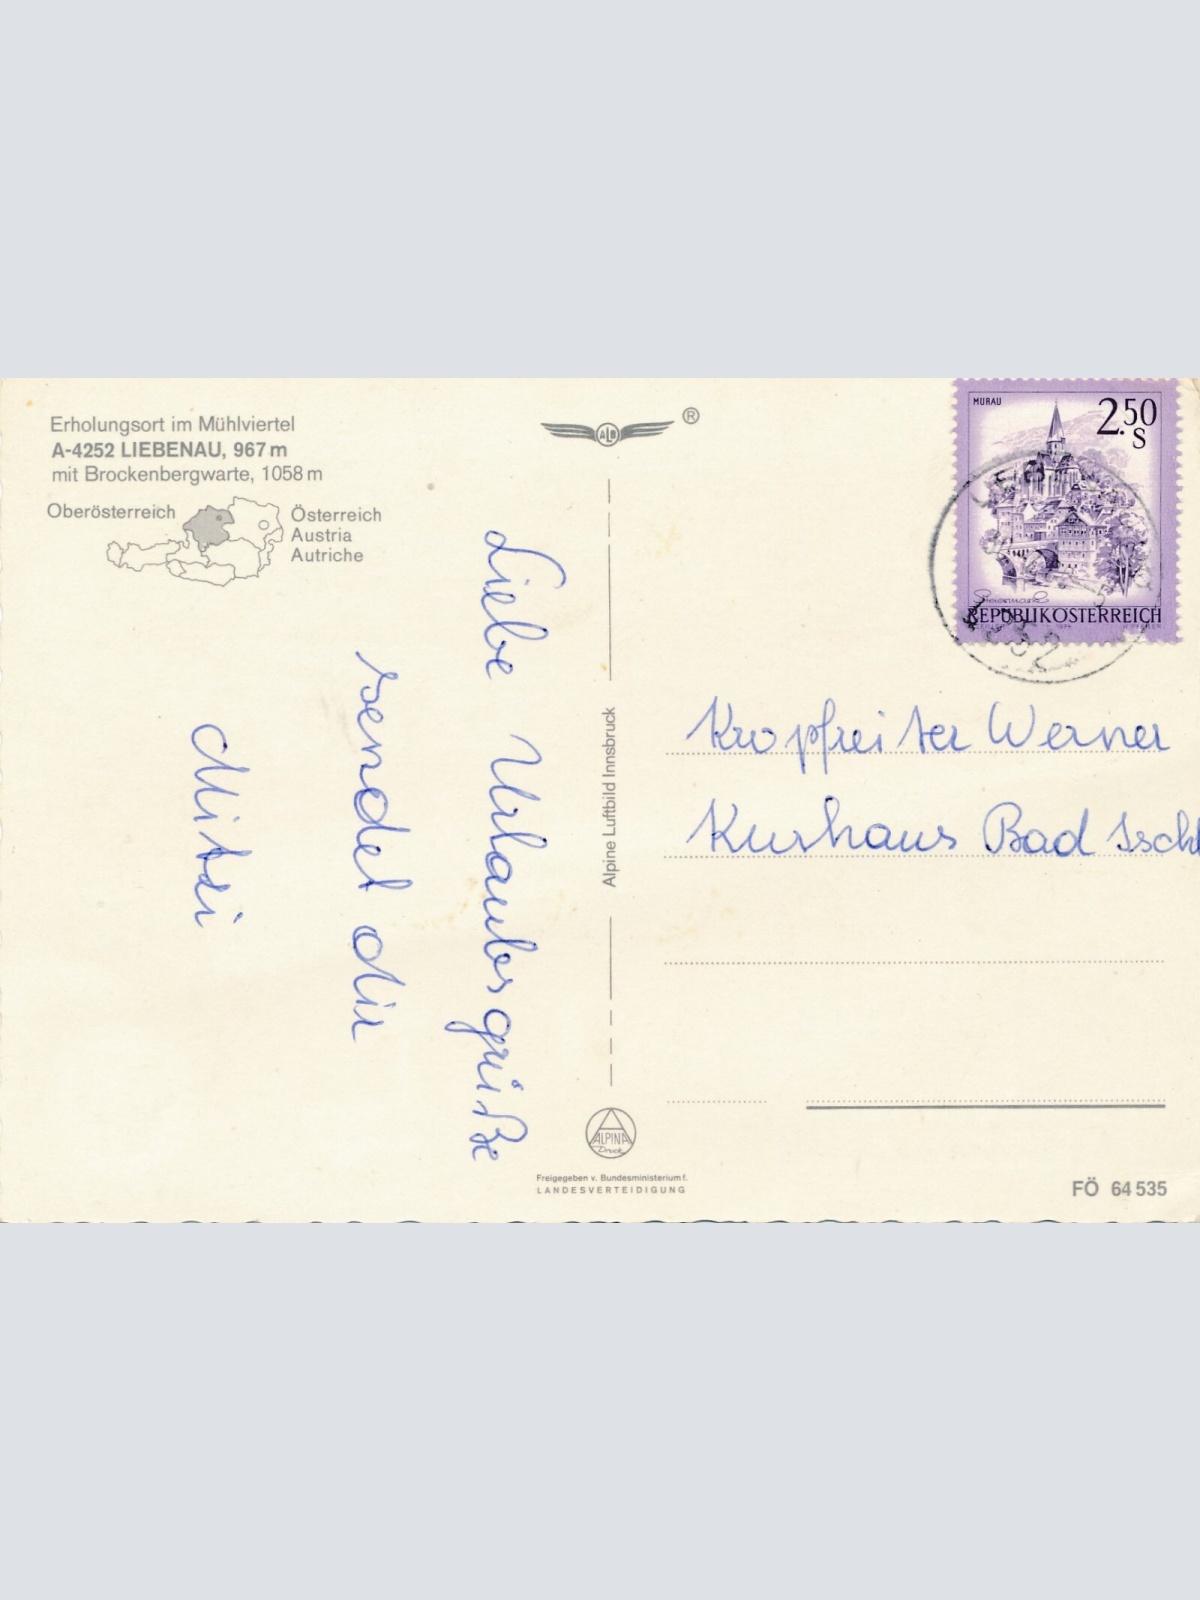 Erholungsort im Mühlviertel
A-4252 LIEBENAU, 967 m
mit Brockenbergwarte, 1058 m
Oberösterreich
Österreich
Austria
Autriche
ALB ®
MURAU
2.50
S
Steiermark
REPUBLIK ÖSTERREICH
1974
4252
Liebe Urlaubsgrüße
sendet dir
Mitzi
Alpine Luftbild Innsbruck
Kropfreiter Werner
Kurhaus Bad Ischl
ALPINA
Druck
Freigegeben v. Bundesministerium f.
LANDESVERTEIDIGUNG
FÖ 64 535